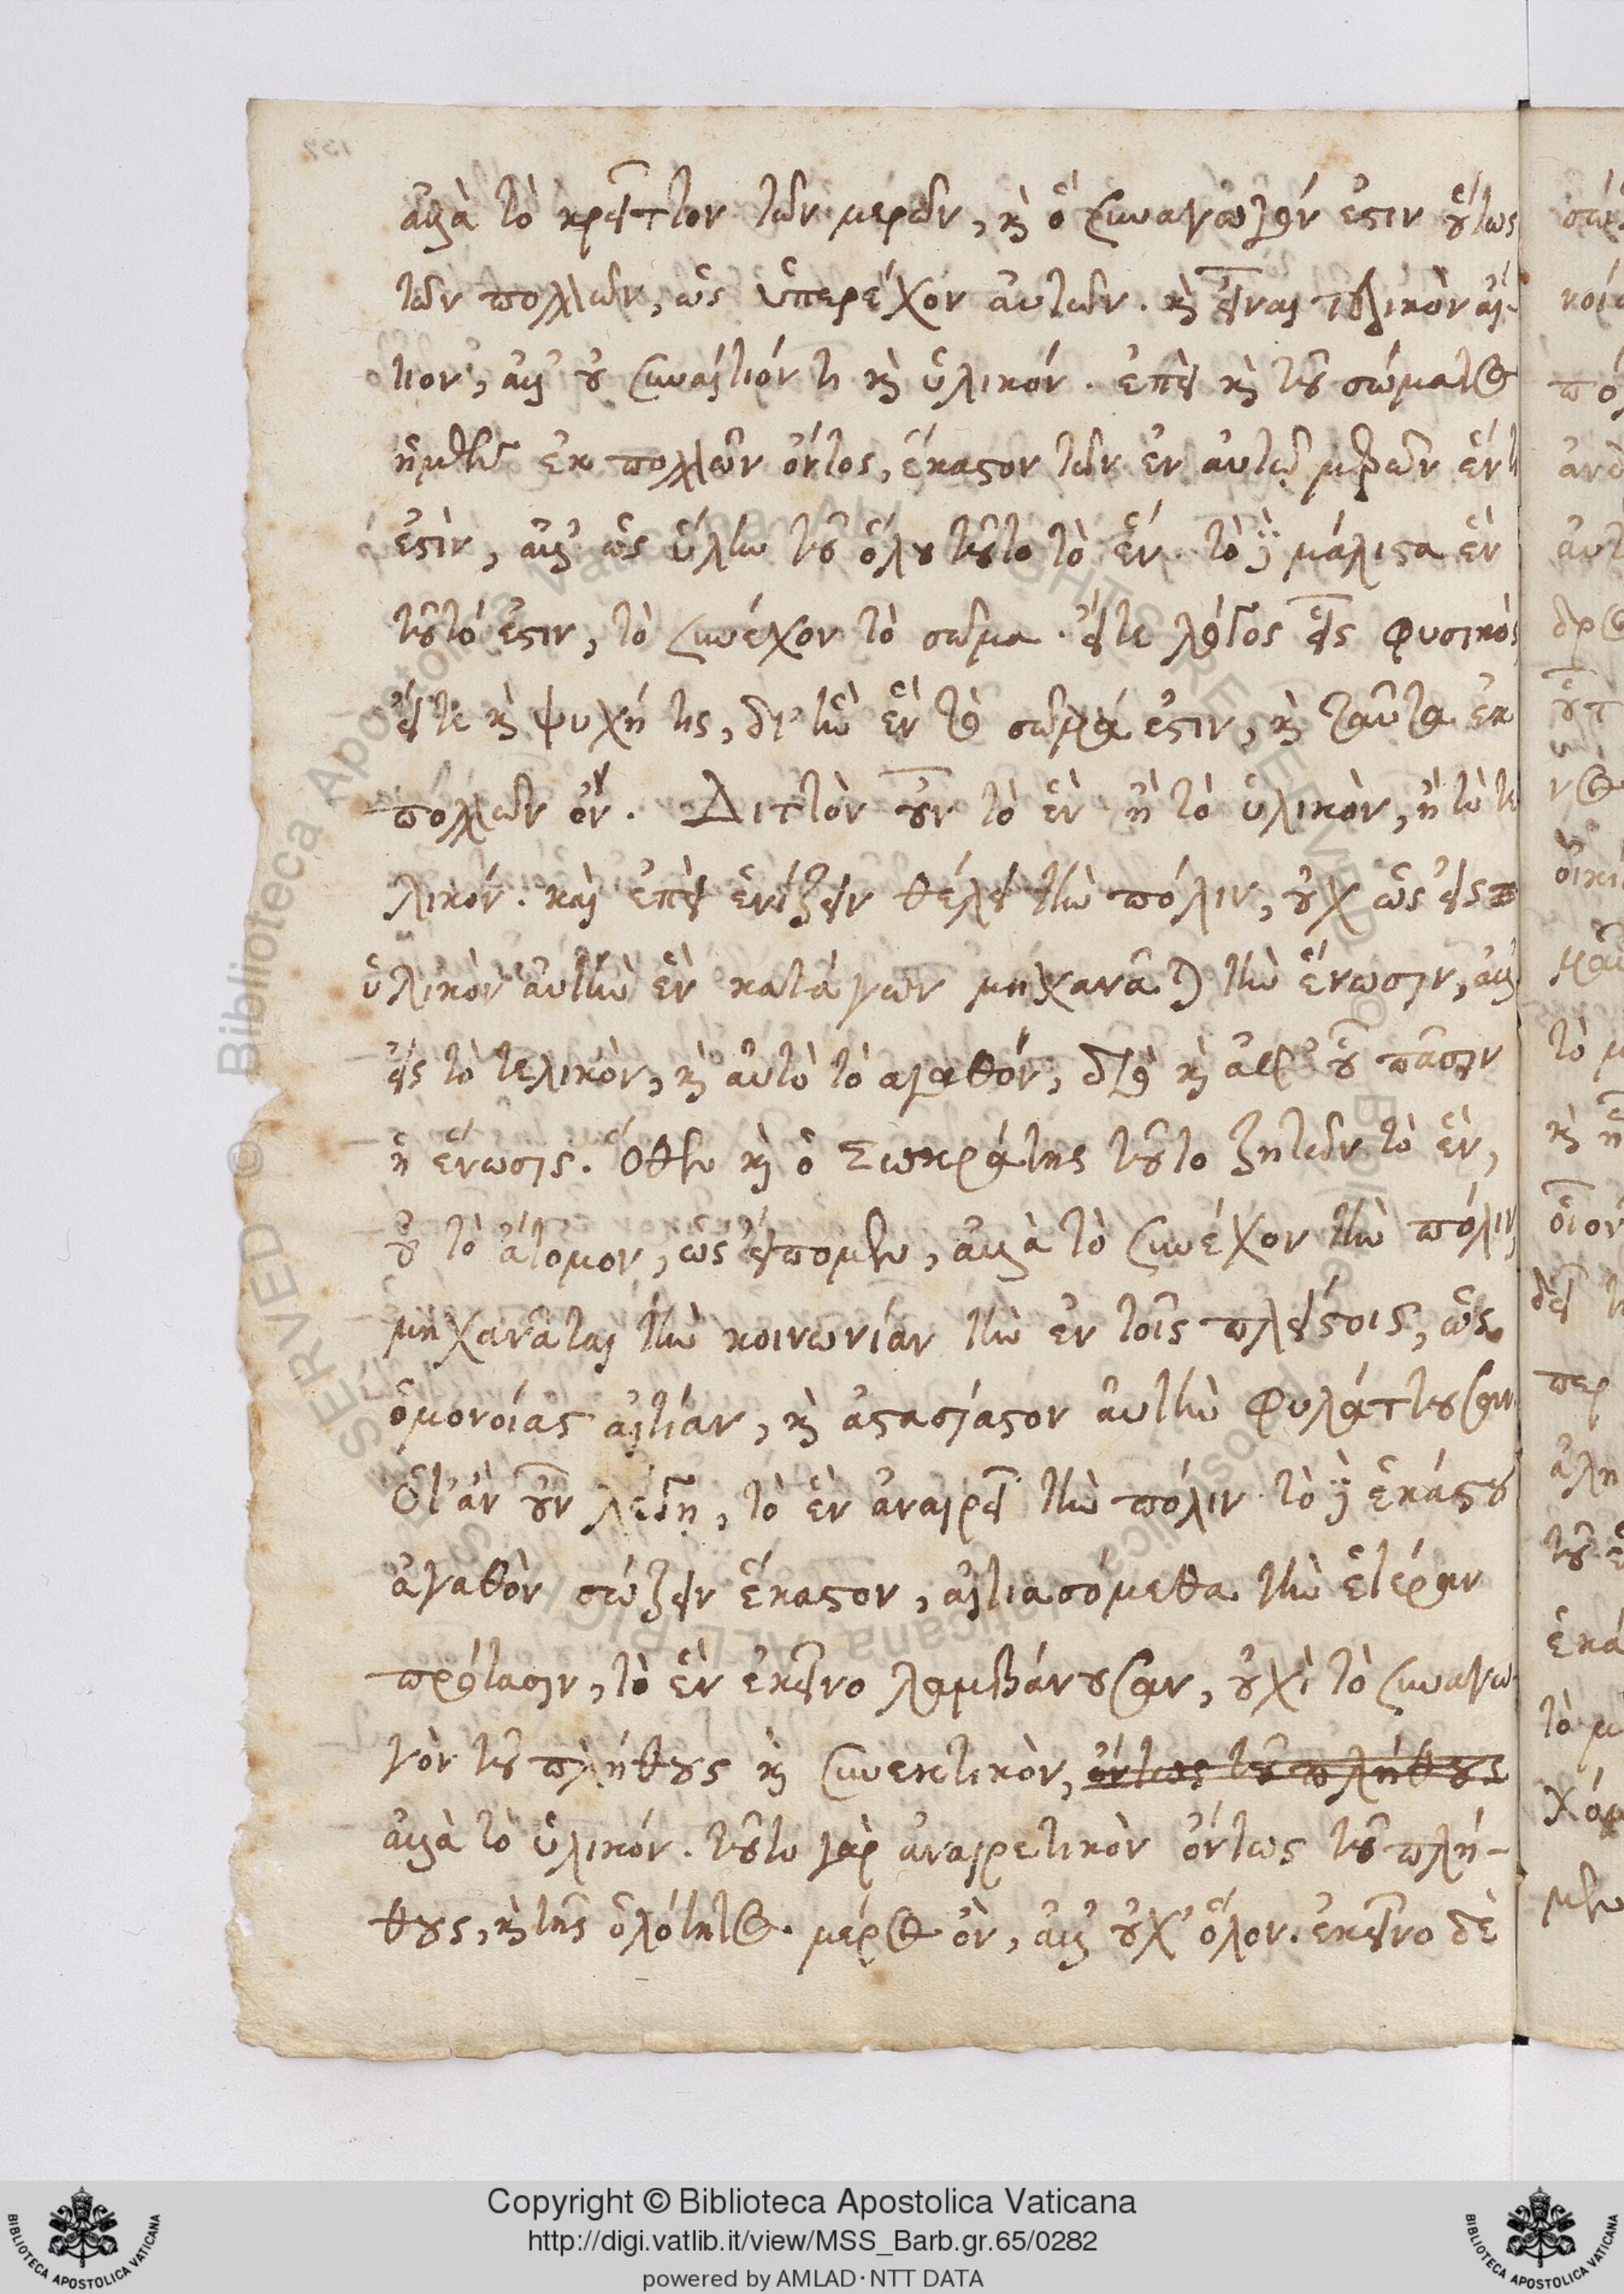 ἀλλὰ τὸ κρεῖττον τῶν μερῶν, καὶ ὃ συναγωγόν ἐστιν οὕτως
τῶν πολλῶν, ὡς ὑπερέχον αὐτῶν. καὶ εἶναι τελικὸν αἴ-
τιον, ἀλλ' οὐ συναίτιόν τι καὶ ὑλικόν. ἐπεὶ καὶ τοῦ σώματος
ἡμῶν ἐκ πολλῶν ὄντος, ἕκαστον τῶν ἐν αὐτῷ μερῶν ἕν τι
ἐστὶν, ἀλλ' ὡς ὕλην τοῦ ὅλου τοῦτο τὸ ἕν. τὸ δὲ μάλιστα ἓν
τοῦτό ἐστιν, τὸ συνέχον τὸ σῶμα. εἴτε λόγος εἷς φυσικὸς
εἴτε καὶ ψυχή τις, δι' ἣν ἓν τὸ σῶμά ἐστιν, καὶ ταῦτα ἐκ
πολλῶν ὄν. Διττὸν οὖν τὸ ἓν ἢ τὸ ὑλικὸν, ἢ τὸ τε
λικόν. καὶ ἐπεὶ ἑνίζειν θέλει τὴν πόλιν, οὐχ ὡς εἰς
ὑλικὸν αὐτὴν ἓν κατάγων μηχανᾶται τὴν ἕνωσιν, ἀλλ'
εἰς τὸ τελικὸν, καὶ αὐτὸ τὸ ἀγαθόν, διὸ καὶ ἀφ' οὗ πᾶσιν
ἡ ἕνωσις. Ὅθεν καὶ ὁ Σωκράτης τοῦτο ζητῶν τὸ ἓν,
οὐ τὸ ἄτομον, ὡς εἴπομεν, ἀλλὰ τὸ συνέχον τὴν πόλιν,
μηχανᾶται τὴν κοινωνίαν τὴν ἐν τοῖς πλείστοις, ὡς
ὁμονοίας αἰτίαν, καὶ ἀστασίαστον αὐτὴν φυλάττουσαν.
Ὅτ' ἂν οὖν λέγῃ, τὸ ἓν ἀναιρεῖ τὴν πόλιν. τὸ δὲ ἑκάστου
ἀγαθὸν σώζειν ἕκαστον, αἰτιασόμεθα τὴν ἑτέραν
πρότασιν, τὸ ἓν ἐκεῖνο λαμβάνουσαν, οὐχὶ τὸ συναγω-
γὸν τοῦ πλήθους καὶ συνεκτικὸν, ὄντως τοῦ πλήθους
ἀλλὰ τὸ ὑλικόν. τοῦτο γὰρ ἀναιρετικὸν ὄντως τοῦ πλή-
θους, καὶ τῆς ὁλότητος. μέρος ὂν, ἀλλ' οὐχ' ὅλον. ἐκεῖνο δὲ
Copyright © Biblioteca Apostolica Vaticana
http://digi.vatlib.it/view/MSS_Barb.gr.65/0282
powered by AMLAD·NTT DATA